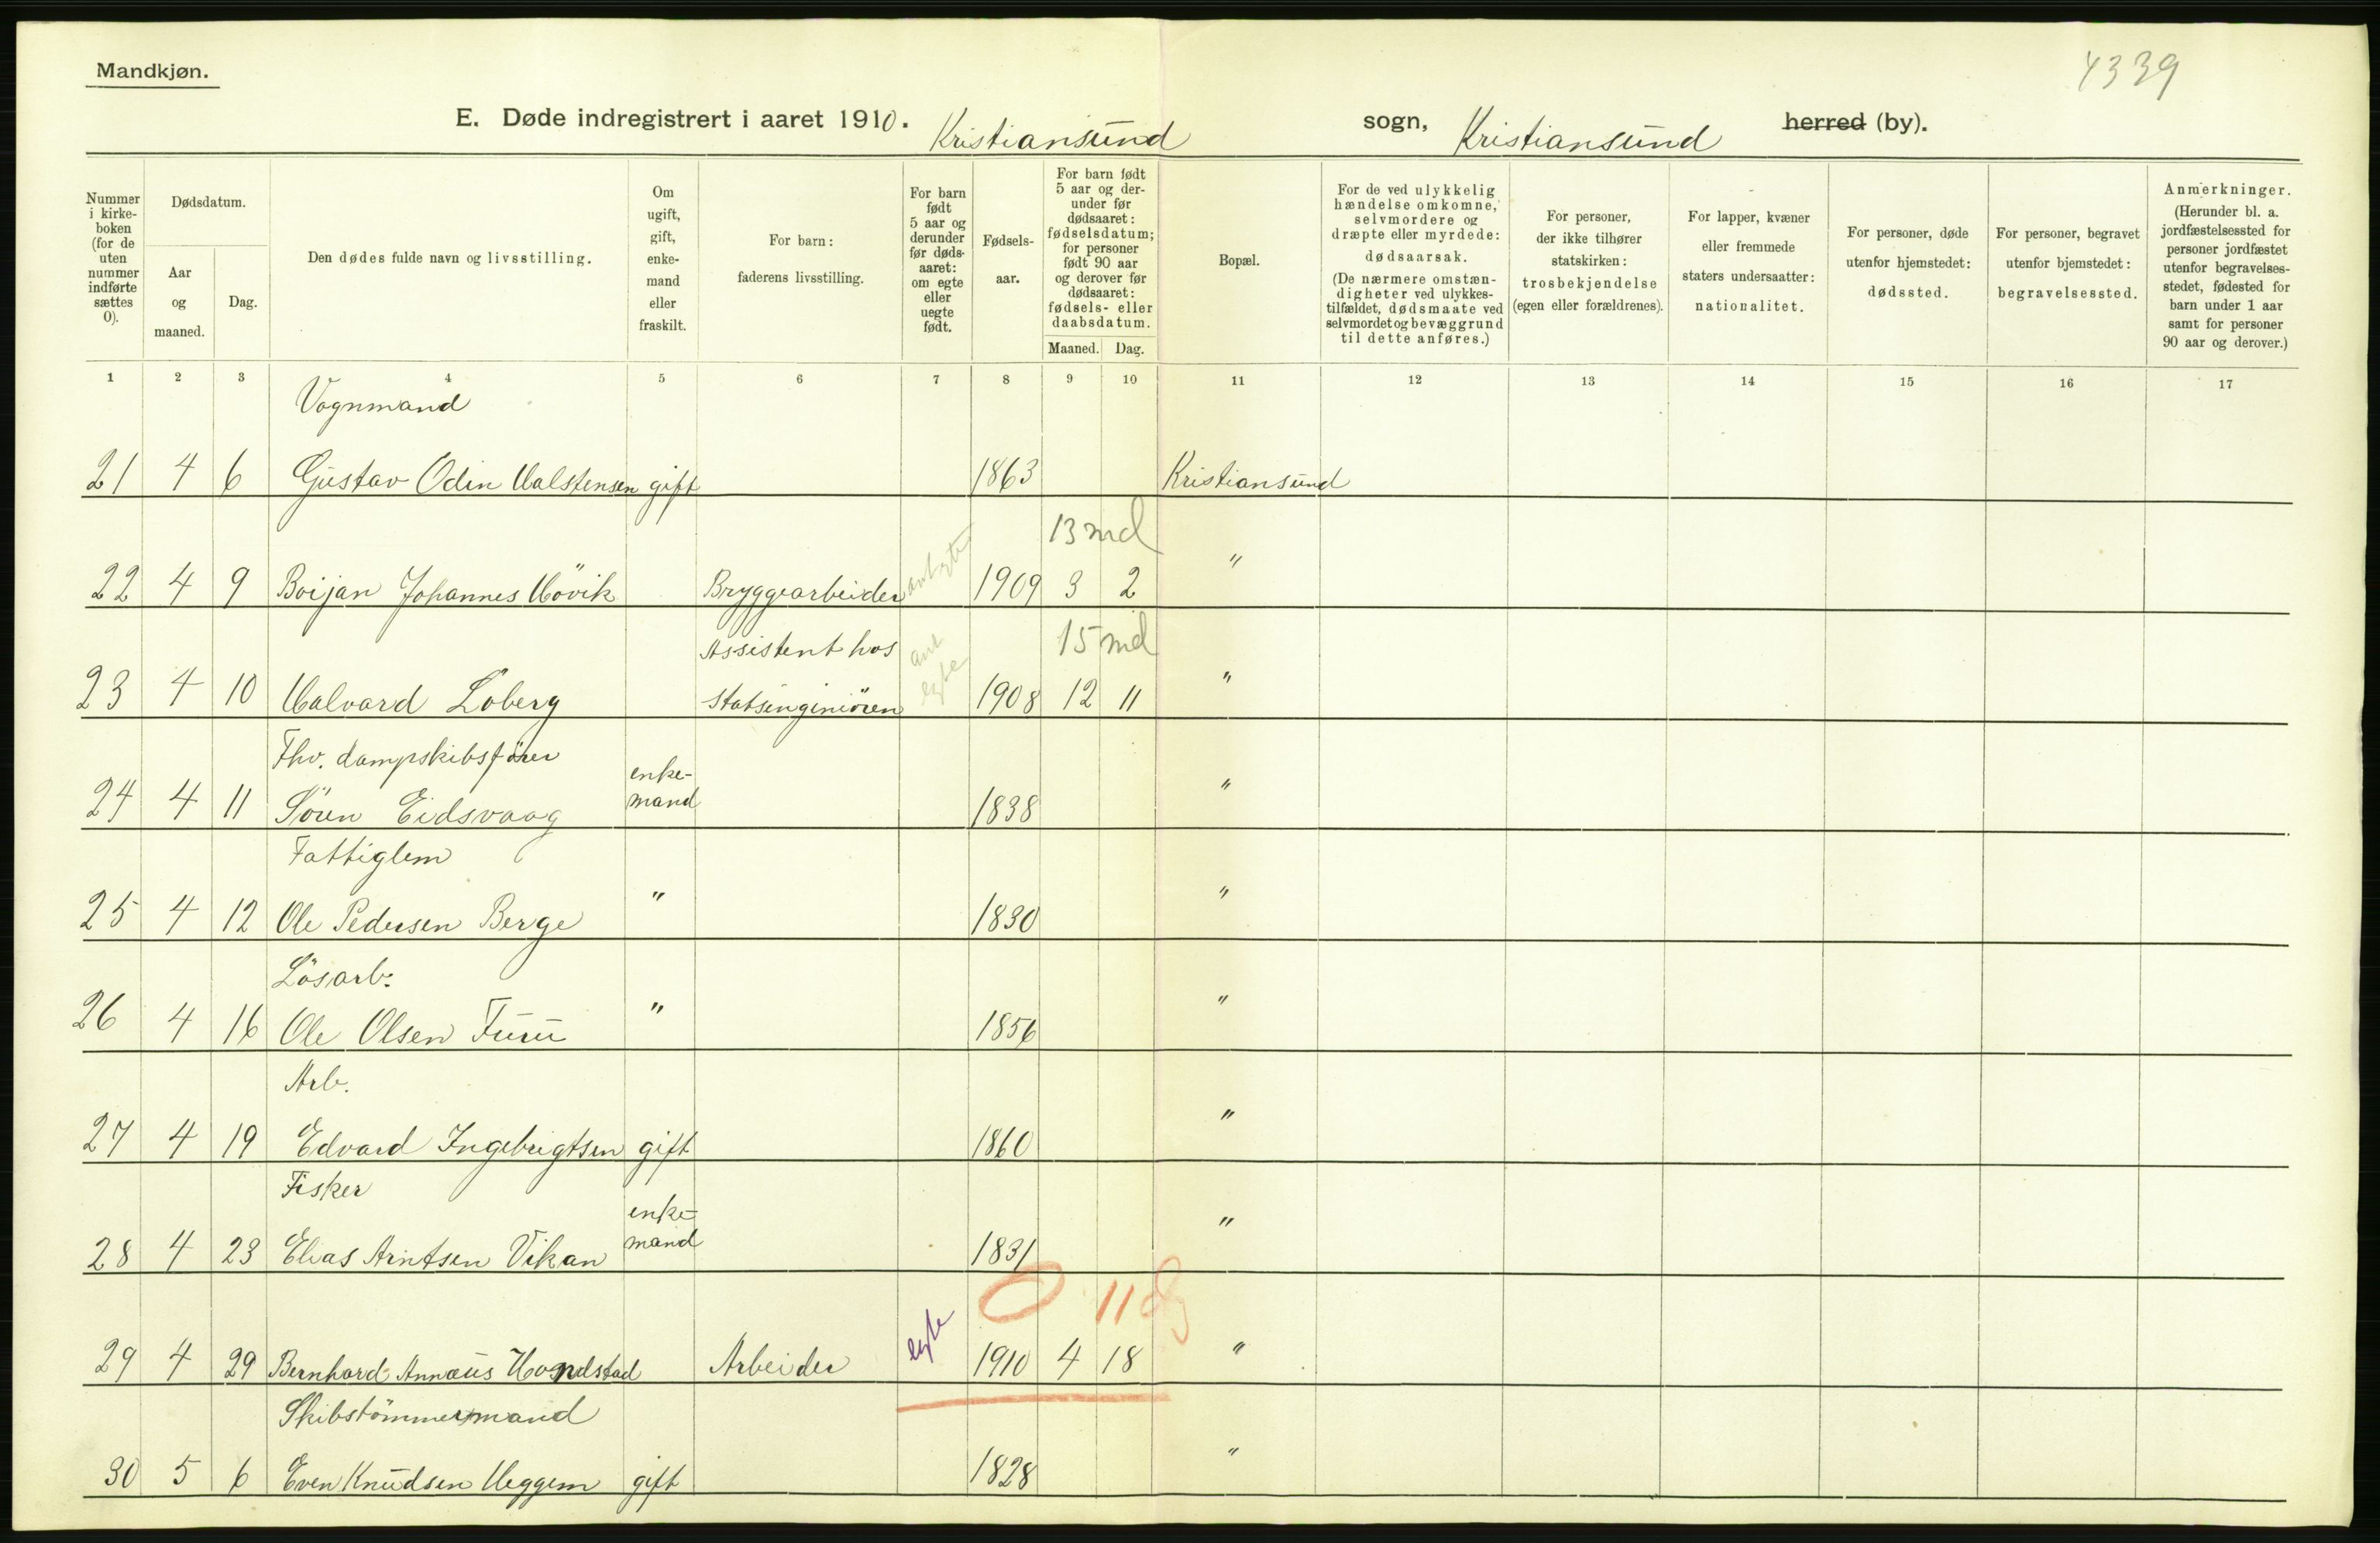 Mandkjøn.
4339
E. Døde indregistrert i aaret 1910. Kristiansund sogn, Kristiansund herred (by).
Nummer i kirke- boken (for de uten nummer indførte sættes 0).
Dødsdatum.
Aar og maaned.
Dag.
Den dødes fulde navn og livsstilling.
Om ugift, gift, enke- mand eller fraskilt.
For barn: faderens livsstilling.
For barn født 5 aar og derunder før døds- aaret: om egte eller uegte født.
Fødsels- aar.
For barn født 5 aar og der- under før dødsaaret: fødselsdatum; for personer født 90 aar og derover før dødsaaret: fødsels- eller daabsdatum.
Maaned. Dag.
Bopæl.
For de ved ulykkelig hændelse omkomne, selvmordere og dræpte eller myrdede: dødsaarsak. (De nærmere omstæn- digheter ved ulykkes- tilfældet, dødsmaate ved selvmordet og bevæggrund til dette anføres.)
For personer, der ikke tilhører statskirken: trosbekjendelse (egen eller forældrenes).
For lapper, kvæner eller fremmede staters undersaatter: nationalitet.
For personer, døde utenfor hjemstedet: dødssted.
For personer, begravet utenfor hjemstedet: begravelsessted.
Anmerkninger. (Herunder bl. a. jordfæstelsessted for personer jordfæstet utenfor begravelses- stedet, fødested for barn under 1 aar samt for personer 90 aar og derover.)
1 2 3 4 5 6 7 8 9 10 11 12 13 14 15 16 17
Vognmand
21 4 6 Gustav Odin Halstensen gift 1863 Kristiansund
13 md
22 4 9 Boijan Johannes Hövik Bryggearbeider ant egte 1909 3 2 "
Assistent hos ant 15 md
23 4 10 Halvard Loberg statsingeniören egte 1908 12 11 "
Fhv. dampskibsförer enke-
24 4 11 Sören Eidsvaag mand 1838 "
Fattiglem
25 4 12 Ole Pedersen Berge " 1830 "
Lösarb.
26 4 16 Ole Olsen Furu " 1856 "
Arb.
27 4 19 Edvard Ingebrigtsen gift 1860 "
Fisker enke-
28 4 23 Elias Arntsen Vikan mand 1831 "
0 11 dg
29 4 29 Bernhard Annæus Hogndstad Arbeider egte 1910 4 18 "
Skibstömmermand
30 5 6 Even Knudsen Heggem gift 1828 "